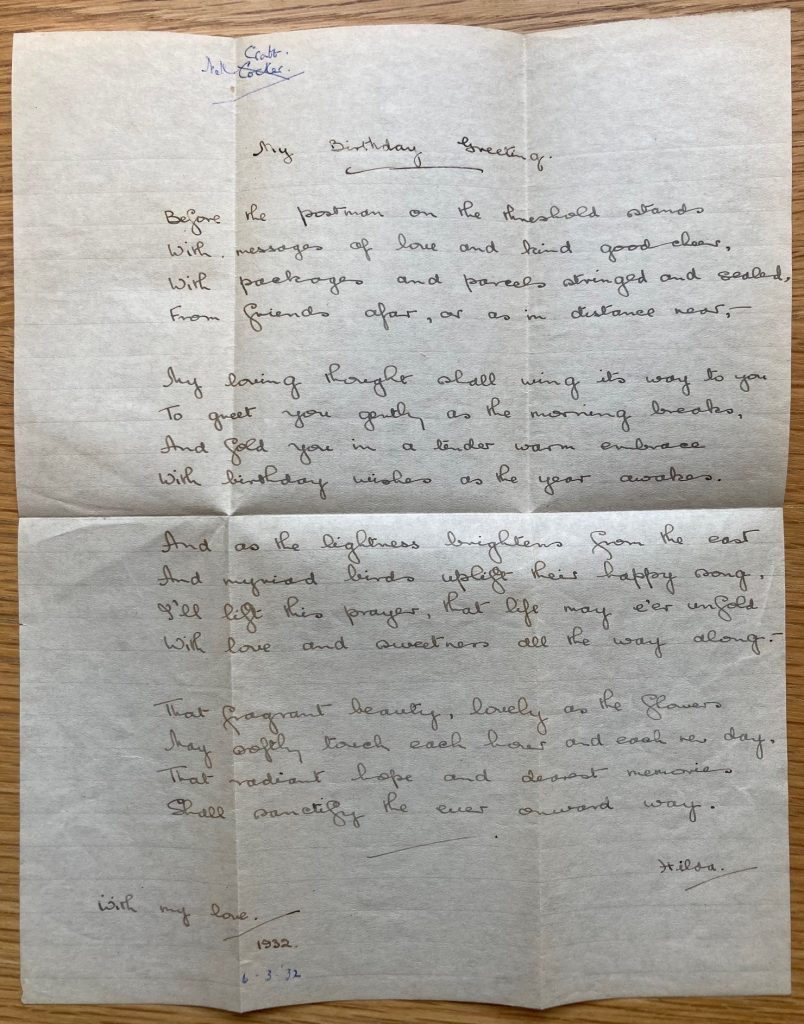 Crabb.
Nell Cocker.
My Birthday Greeting.
Before the postman on the threshold stands
With messages of love and kind good cheer,
With packages and parcels stringed and sealed,
From friends afar, or as in distance near,-
My loving thought shall wing its way to you
To greet you gently as the morning breaks,
And fold you in a tender warm embrace
With birthday wishes as the year awakes.
And as the lightness brightens from the east
And myriad birds uplift their happy song,
I'll lift this prayer, that life may e'er unfold
With love and sweetness all the way along:-
That fragrant beauty, lovely as the flowers
May softly touch each hour and each new day,
That radiant hope and dearest memories
Shall sanctify the ever onward way.
Hilda.
With my love.
1932.
6-3-'32